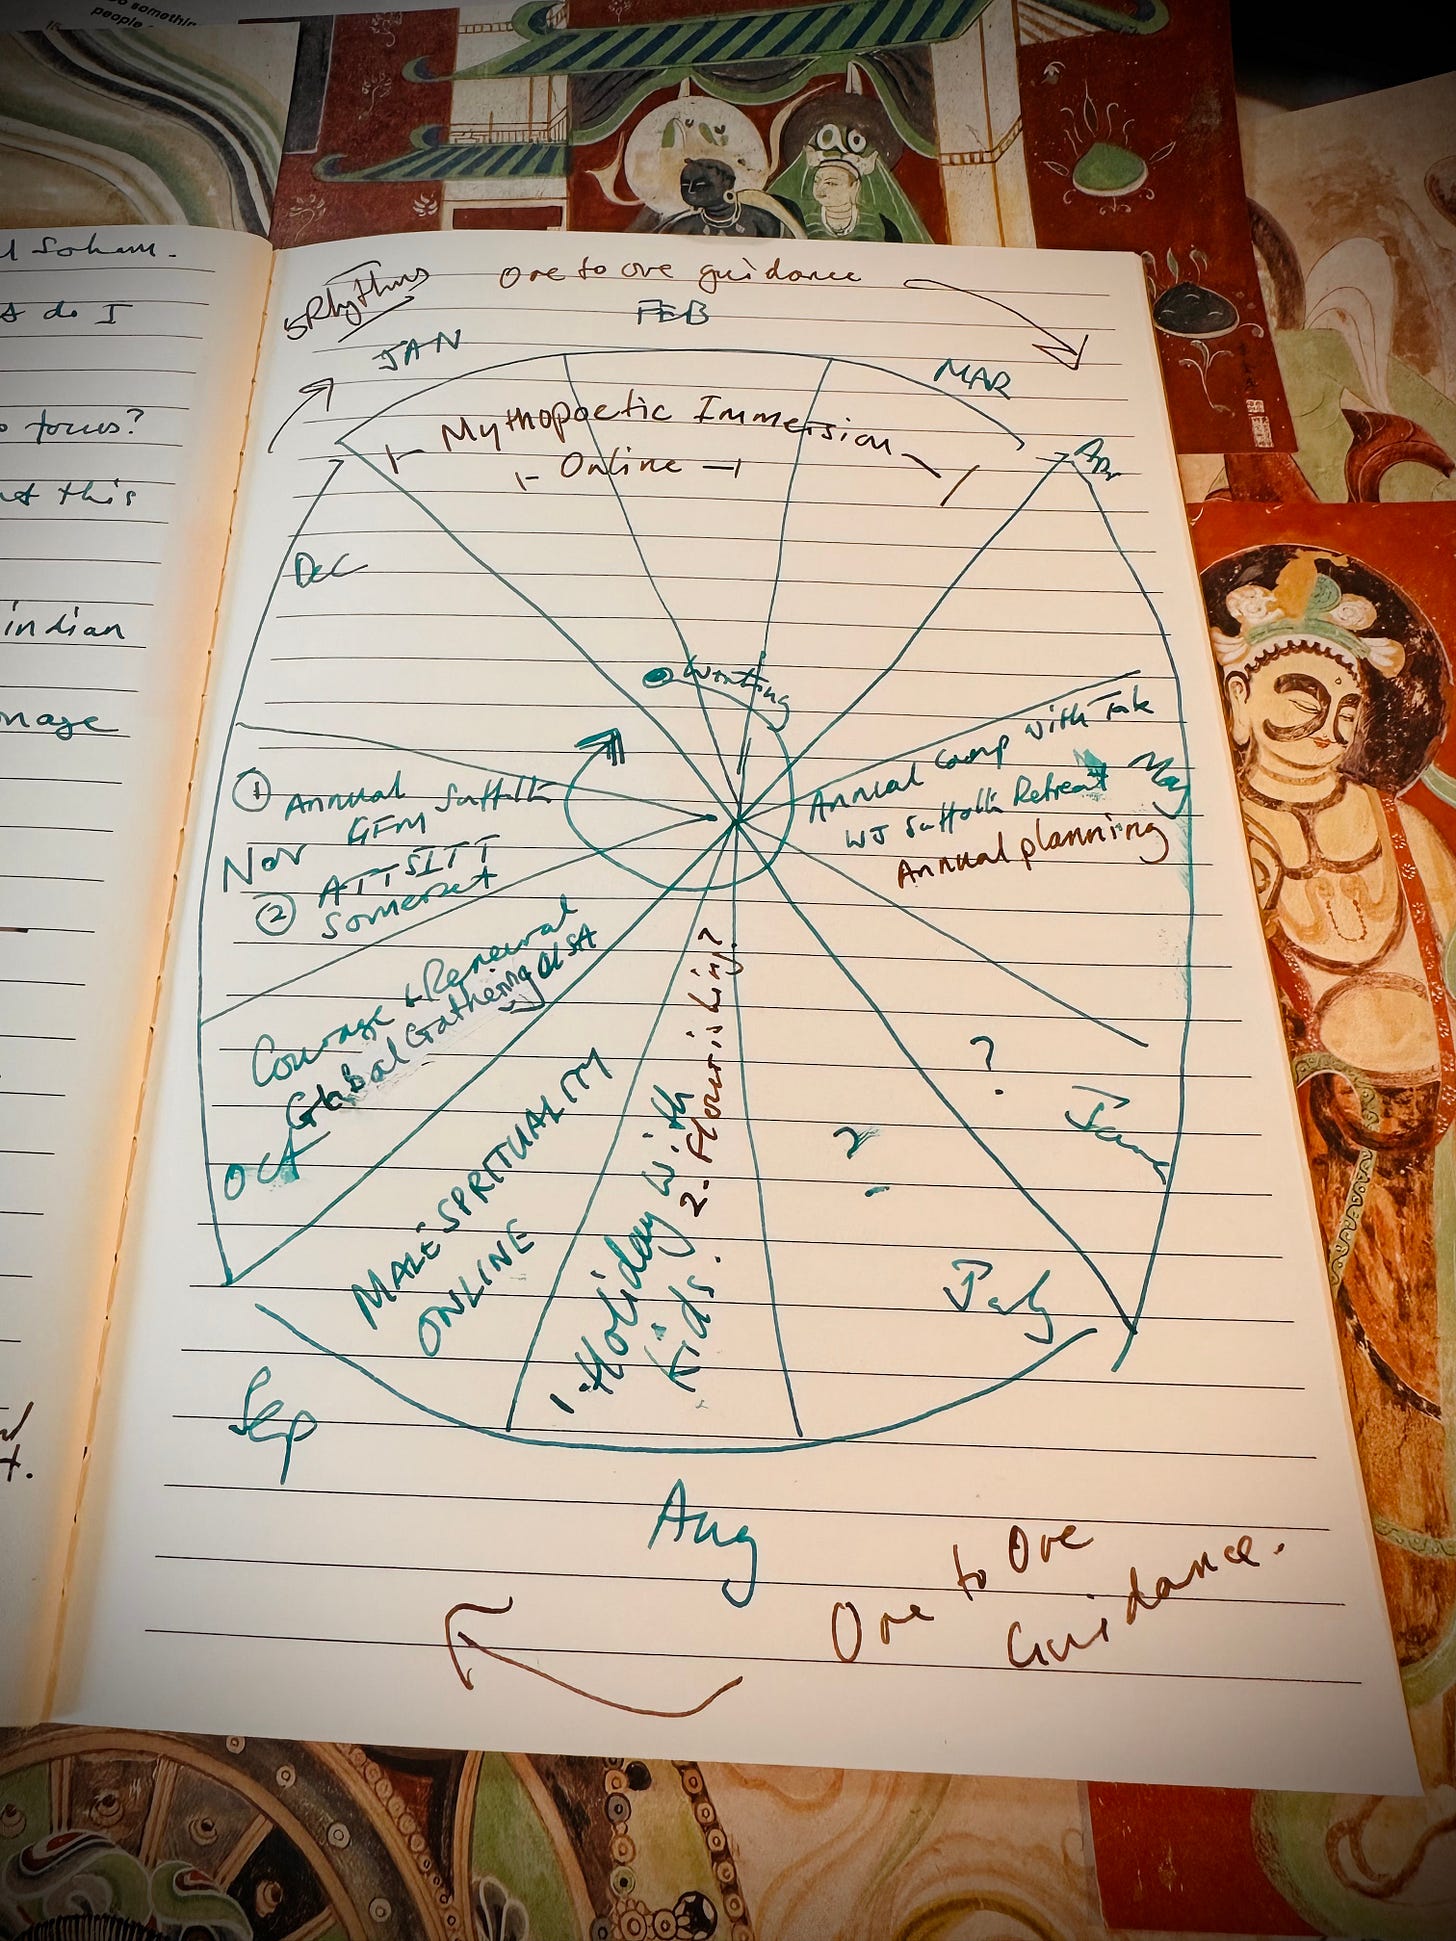 people -
l Soham.
do I
focus?
this
indian
5Rhythms
One to one guidance
JAN
FEB
MAR
Apr
Mythopoetic Immersion
Online
Dec
Writing
Annual Camp with
WJ Suffolk Retreat
May
Annual planning
① Annual Suffolk
GFM
Nov
② ATTSITT
Somerset
Courage & Renewal
Global Gathering
Oct
?
June
?
July
MALE SPRITUALITY
ONLINE
1. Holiday with
Kids.
2. Flourishing?
Sep
Aug
One to One
Guidance.